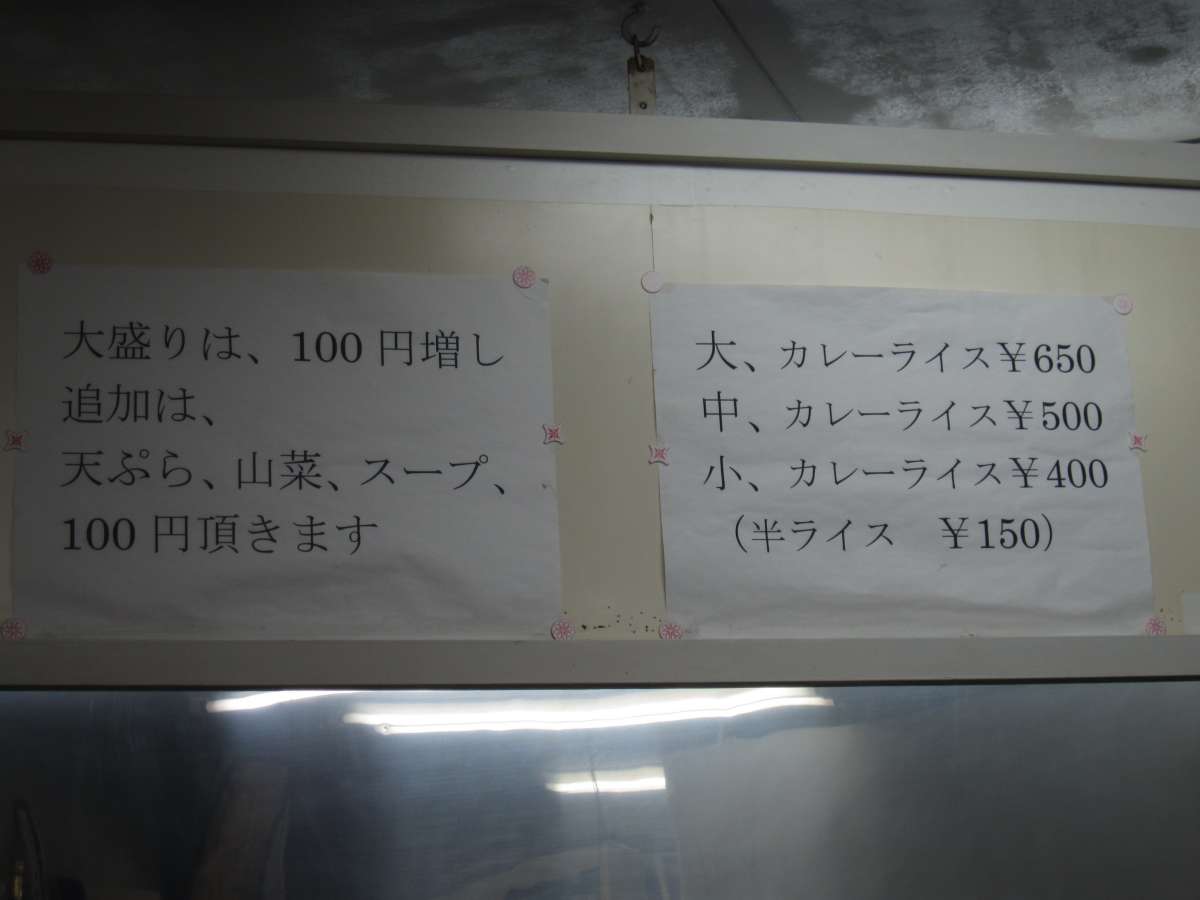 大盛りは、100円増し
追加は、
天ぷら、山菜、スープ、
100円頂きます
大、カレーライス￥650
中、カレーライス￥500
小、カレーライス￥400
（半ライス　￥150）